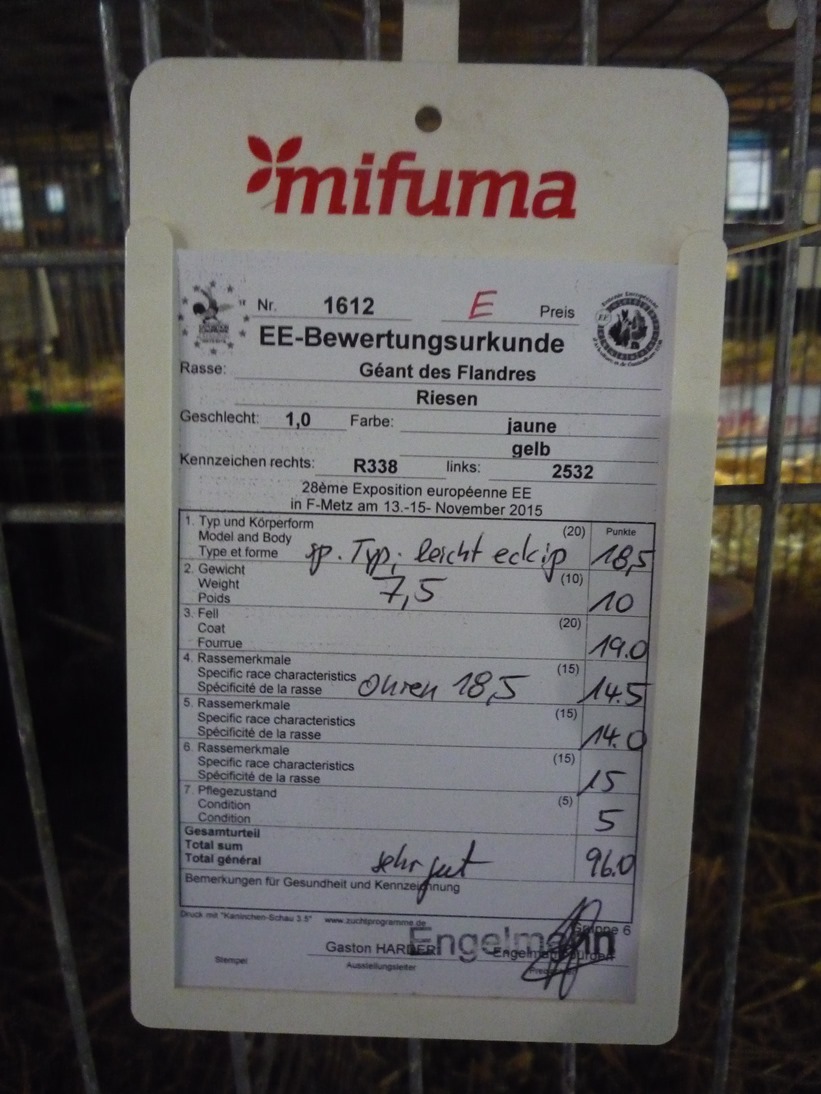 mifuma
Nr. 1612 E Preis
EE-Bewertungsurkunde
Rasse: Géant des Flandres
Riesen
Geschlecht: 1,0 Farbe: jaune
gelb
Kennzeichen rechts: R338 links: 2532
28ème Exposition européenne EE
in F-Metz am 13.-15- November 2015
1. Typ und Körperform (20) Punkte
Model and Body
Type et forme sp. Typ; leicht eckig 18,5
2. Gewicht (10)
Weight 7,5
Poids 10
3. Fell (20)
Coat
Fourrue 19.0
4. Rassemerkmale (15)
Specific race characteristics
Spécificité de la rasse Ohren 18,5 14.5
5. Rassemerkmale (15)
Specific race characteristics
Spécificité de la rasse 14.0
6. Rassemerkmale (15)
Specific race characteristics
Spécificité de la rasse 15
7. Pflegezustand (5)
Condition
Condition 5
Gesamturteil
Total sum
Total général sehr gut 96.0
Bemerkungen für Gesundheit und Kennzeichnung
Druck mit "Kaninchen-Schau 3.5" www.zuchtprogramme.de
Gruppe 6
Engelmann
Gaston HARDER Engelmann Jürgen
Stempel Ausstellungsleiter